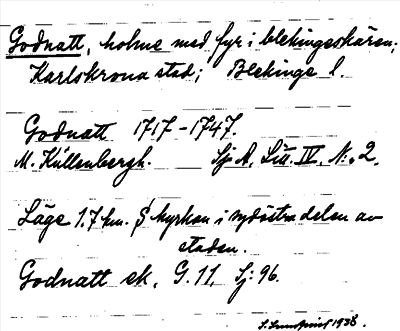 Godnatt, holme med fyr i blekingeskären;
Karlskrona stad; Blekinge l.
Godnatt 1717-1747.
M. Küllenbergh. Sj A. Litt. IV. N:o 2.
Läge 1.7 km. S kyrkan i sydöstra delen av
staden.
Godnatt ek. G. 11. Sj: 96.
1938.